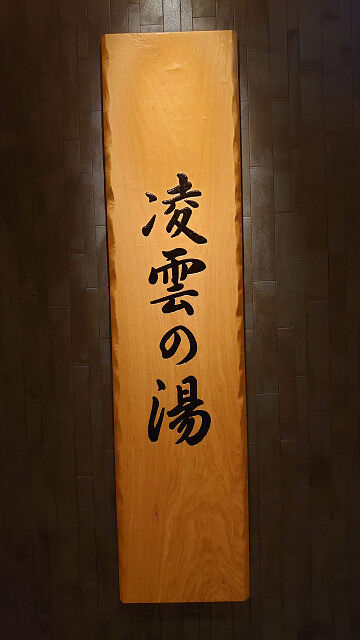 凌雲の湯